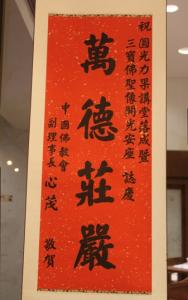 祝圓光力果講堂落成暨
三寶佛聖像開光安座 誌慶
萬德莊嚴
中國佛教會
副理事長 心茂 敬賀